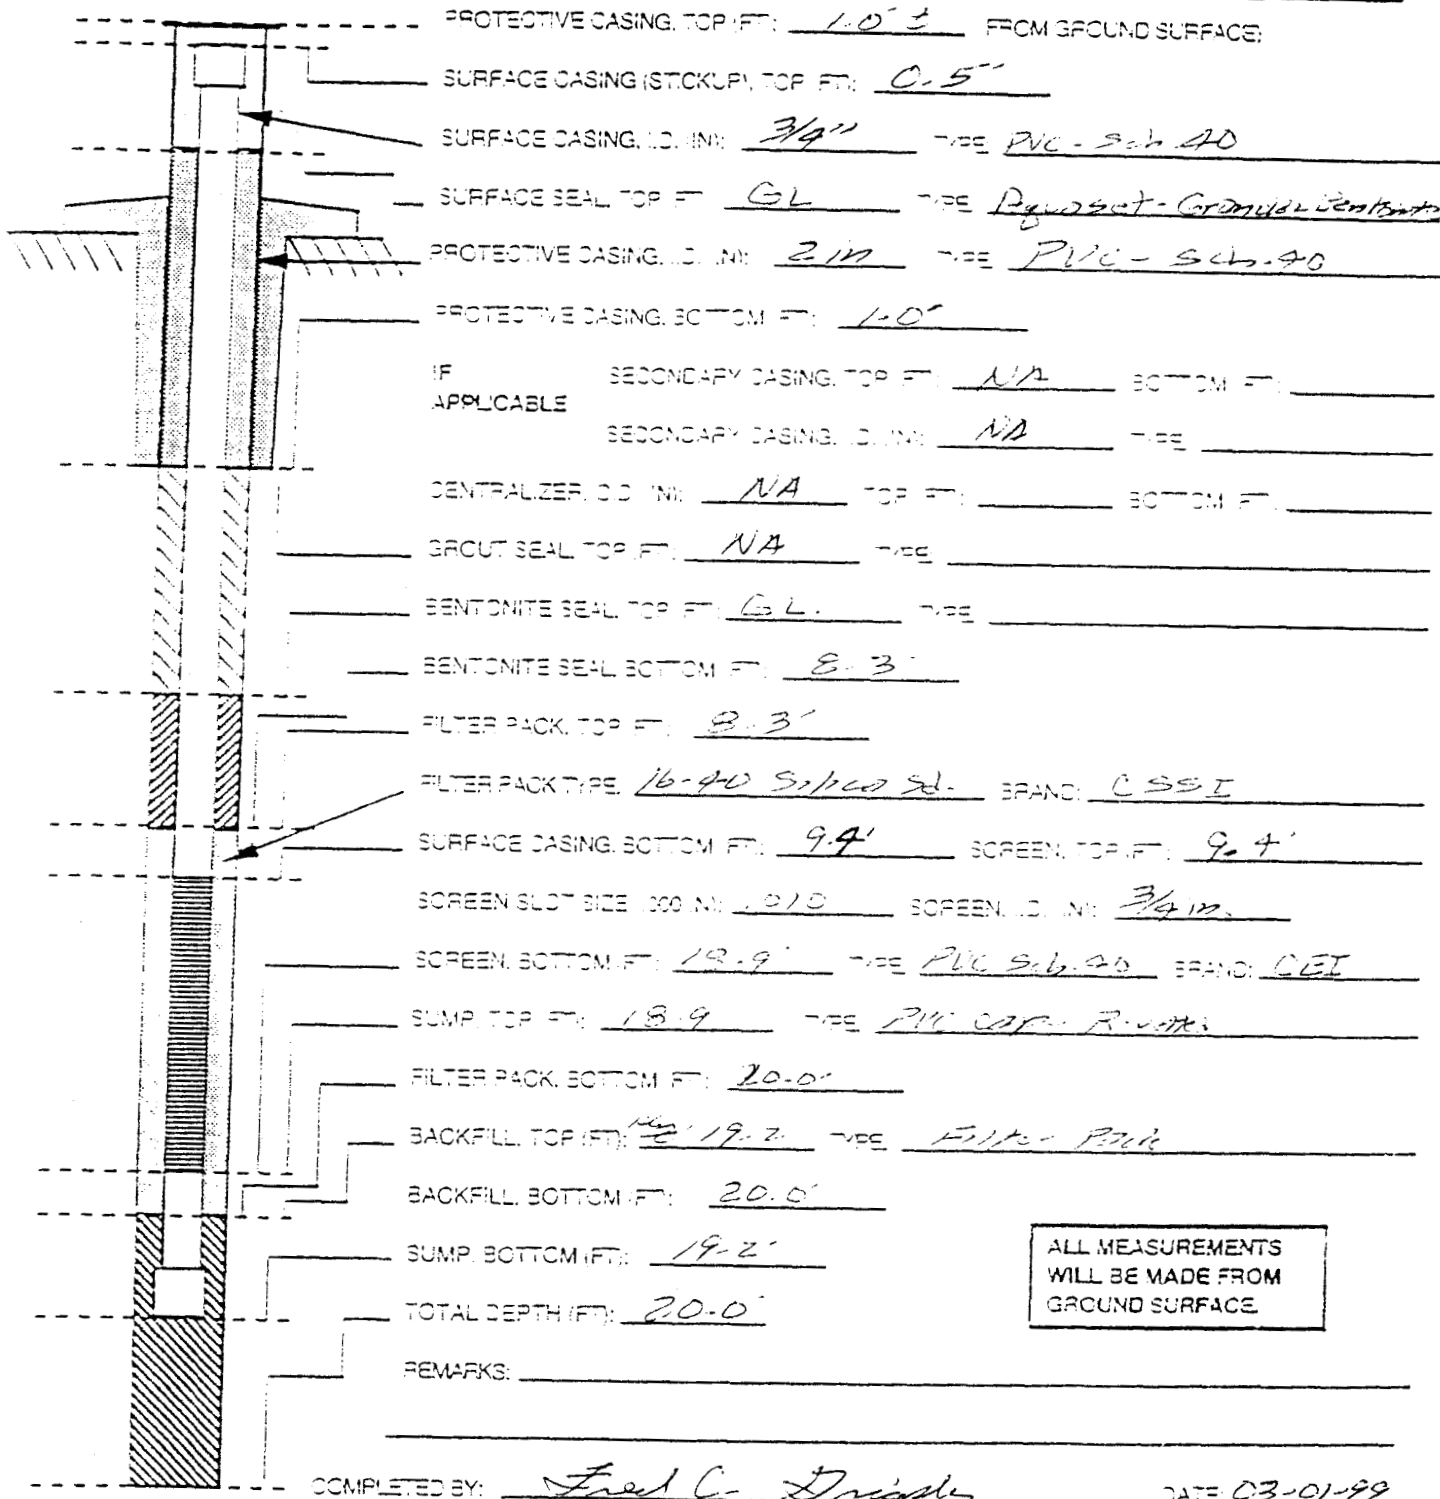 PROTECTIVE CASING, TOP (FT): 1.0' ± FROM GROUND SURFACE:
SURFACE CASING (STICKUP), TOP (FT): 0.5'
SURFACE CASING, I.D. (IN): 3/4" TYPE PVC - Sch 40
SURFACE SEAL, TOP (FT GL TYPE
PROTECTIVE CASING, I.D. (IN): 2 in TYPE PVC - Sch. 40
PROTECTIVE CASING, BOTTOM (FT): 1.0'
IF APPLICABLE
SECONDARY CASING, TOP (FT): NA BOTTOM (FT):
SECONDARY CASING, I.D. (IN): NA TYPE
CENTRALIZER, O.D. (IN): NA TOP (FT): BOTTOM (FT):
GROUT SEAL, TOP (FT): NA TYPE
BENTONITE SEAL, TOP (FT): GL. TYPE
BENTONITE SEAL, BOTTOM (FT): 8.3'
FILTER PACK, TOP (FT): 8.3'
FILTER PACK TYPE: 16-40 Silica Sd. BRAND: CSSI
SURFACE CASING, BOTTOM (FT): 9.4' SCREEN, TOP (FT): 9.4'
SCREEN SLOT SIZE (.000 IN): .010 SCREEN, I.D. (IN): 3/4 in.
SCREEN, BOTTOM (FT): 18.9' TYPE PVC Sch. 40 BRAND: CEI
SUMP, TOP (FT): 18.9 TYPE PVC cap
FILTER PACK, BOTTOM (FT): 20.0'
BACKFILL, TOP (FT): 19.2 TYPE Filter Pack
BACKFILL, BOTTOM (FT): 20.0'
SUMP, BOTTOM (FT): 19.2'
TOTAL DEPTH (FT): 20.0'
ALL MEASUREMENTS
WILL BE MADE FROM
GROUND SURFACE.
REMARKS:
COMPLETED BY: Fred C. DATE: 03-01-99